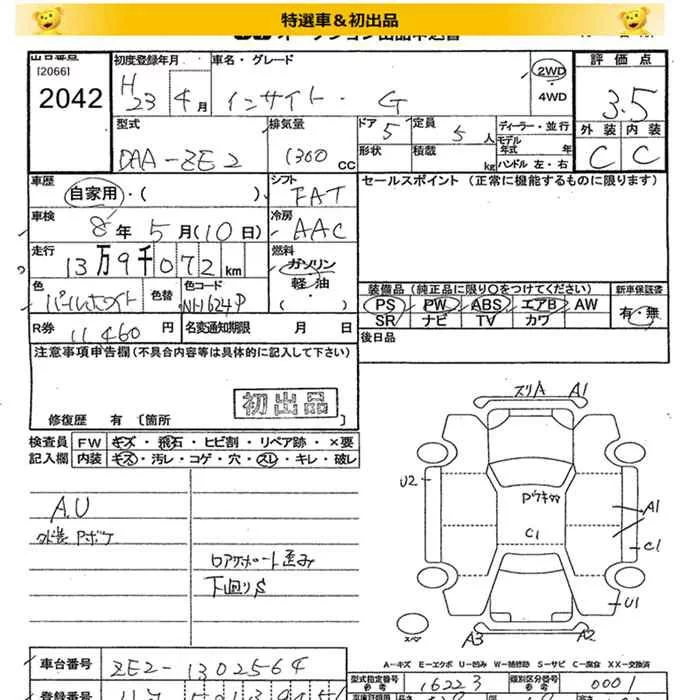 特選車＆初出品
出品審査
[2066]
2042
初度登録年月
H
23 4月
車名・グレード
インサイト・G
2WD
・
4WD
評価点
3.5
外装 内装
C C
型式
DAA-ZE2
排気量
1300 CC
ドア
5
定員
5 人
形状
積載
kg
ディーラー・並行
モデル
年式 年
ハンドル 左・右
車歴
自家用・( )
シフト
FAT
セールスポイント (正常に機能するものに限ります)
車検
8年 5月(10日)
冷房
AAC
走行
13万9千072km
燃料
ガソリン
軽・油
・
( )
色
パールホワイト
色替
色コード
NH624P
装備品 (純正品に限り○をつけてください)
新車保証書
PS PW ABS エアB AW
SR ナビ TV カワ
有・無
R券 11,460円
名変通知期限 月 日
後日品
注意事項申告欄 (不具合内容等は具体的に記入して下さい)
初出品
修復歴 有 〔箇所 〕
検査員 FW キズ・飛石・ヒビ割・リペア跡・×要
記入欄 内装 キズ・汚レ・コゲ・穴・スレ・キレ・破レ
A.U
外装Pボケ
ロアサポート歪み
下回りS
スリA A1
U2
Pウキマ
A1
C1
C1
U1
スペア
A3 A2
A－キズ E－エクボ U－凹み W－補修跡 S－サビ C－腐食 XX－交換済
車台番号 ZE2-1302564
型式指定番号
参考
16223
類別区分番号
参考
0001
登録番号